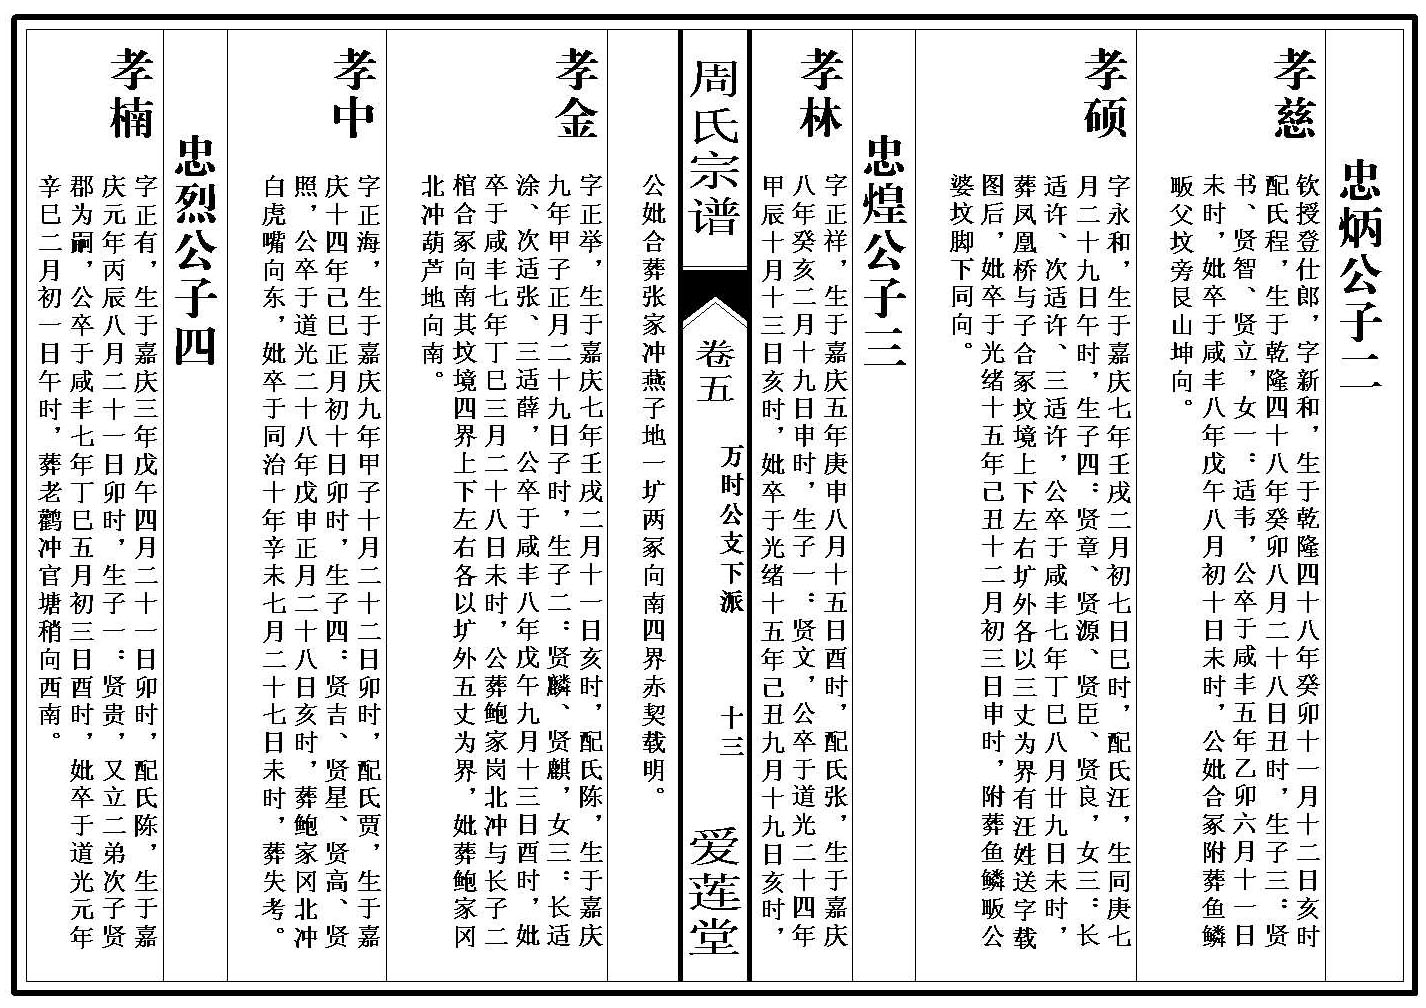 忠炳公子二
孝慈
钦授登仕郎，字新和，生于乾隆四十八年癸卯十一月十二日亥时
配氏程，生于乾隆四十八年癸卯八月二十八日丑时，生子三：贤
书、贤智、贤立，女一：适韦，公卒于咸丰五年乙卯六月十一日
未时，妣卒于咸丰八年戊午八月初十日未时，公妣合冢附葬鱼鳞
畈父坟旁艮山坤向。
孝硕
字永和，生于嘉庆七年壬戌二月初七日巳时，配氏汪，生同庚七
月二十九日午时，生子四：贤章、贤源、贤臣、贤良，女三：长
适许、次适许、三适许，公卒于咸丰七年丁巳八月廿九日未时，
葬凤凰桥与子合冢坟境上下左右圹外各以三丈为界有汪姓送字载
图后，妣卒于光绪十五年己丑十二月初三日申时，附葬鱼鳞畈公
婆坟脚下同向。
忠煌公子三
孝林
字正祥，生于嘉庆五年庚申八月十五日酉时，配氏张，生于嘉庆
八年癸亥二月十九日申时，生子一：贤文，公卒于道光二十四年
甲辰十月十三日亥时，妣卒于光绪十五年己丑九月十九日亥时，
周氏宗谱
卷五
万时公支下派
十三
爱莲堂
公妣合葬张家冲燕子地一圹两冢向南四界赤契载明。
孝金
字正举，生于嘉庆七年壬戌二月十一日亥时，配氏陈，生于嘉庆
九年甲子正月二十九日子时，生子二：贤麟、贤麒，女三：长适
涂、次适张、三适薛，公卒于咸丰八年戊午九月十三日酉时，妣
卒于咸丰七年丁巳三月二十八日未时，公葬鲍家岗北冲与长子二
棺合冢向南其坟境四界上下左右各以圹外五丈为界，妣葬鲍家冈
北冲葫芦地向南。
孝中
字正海，生于嘉庆九年甲子十月二十二日卯时，配氏贾，生于嘉
庆十四年己巳正月初十日卯时，生子四：贤吉、贤星、贤高、贤
照，公卒于道光二十八年戊申正月二十八日亥时，葬鲍家冈北冲
白虎嘴向东，妣卒于同治十年辛未七月二十七日未时，葬失考。
忠烈公子四
孝楠
字正有，生于嘉庆三年戊午四月二十一日卯时，配氏陈，生于嘉
庆元年丙辰八月二十一日卯时，生子一：贤贵，又立二弟次子贤
郡为嗣，公卒于咸丰七年丁巳五月初三日酉时，妣卒于道光元年
辛巳二月初一日午时，葬老鹳冲官塘稍向西南。